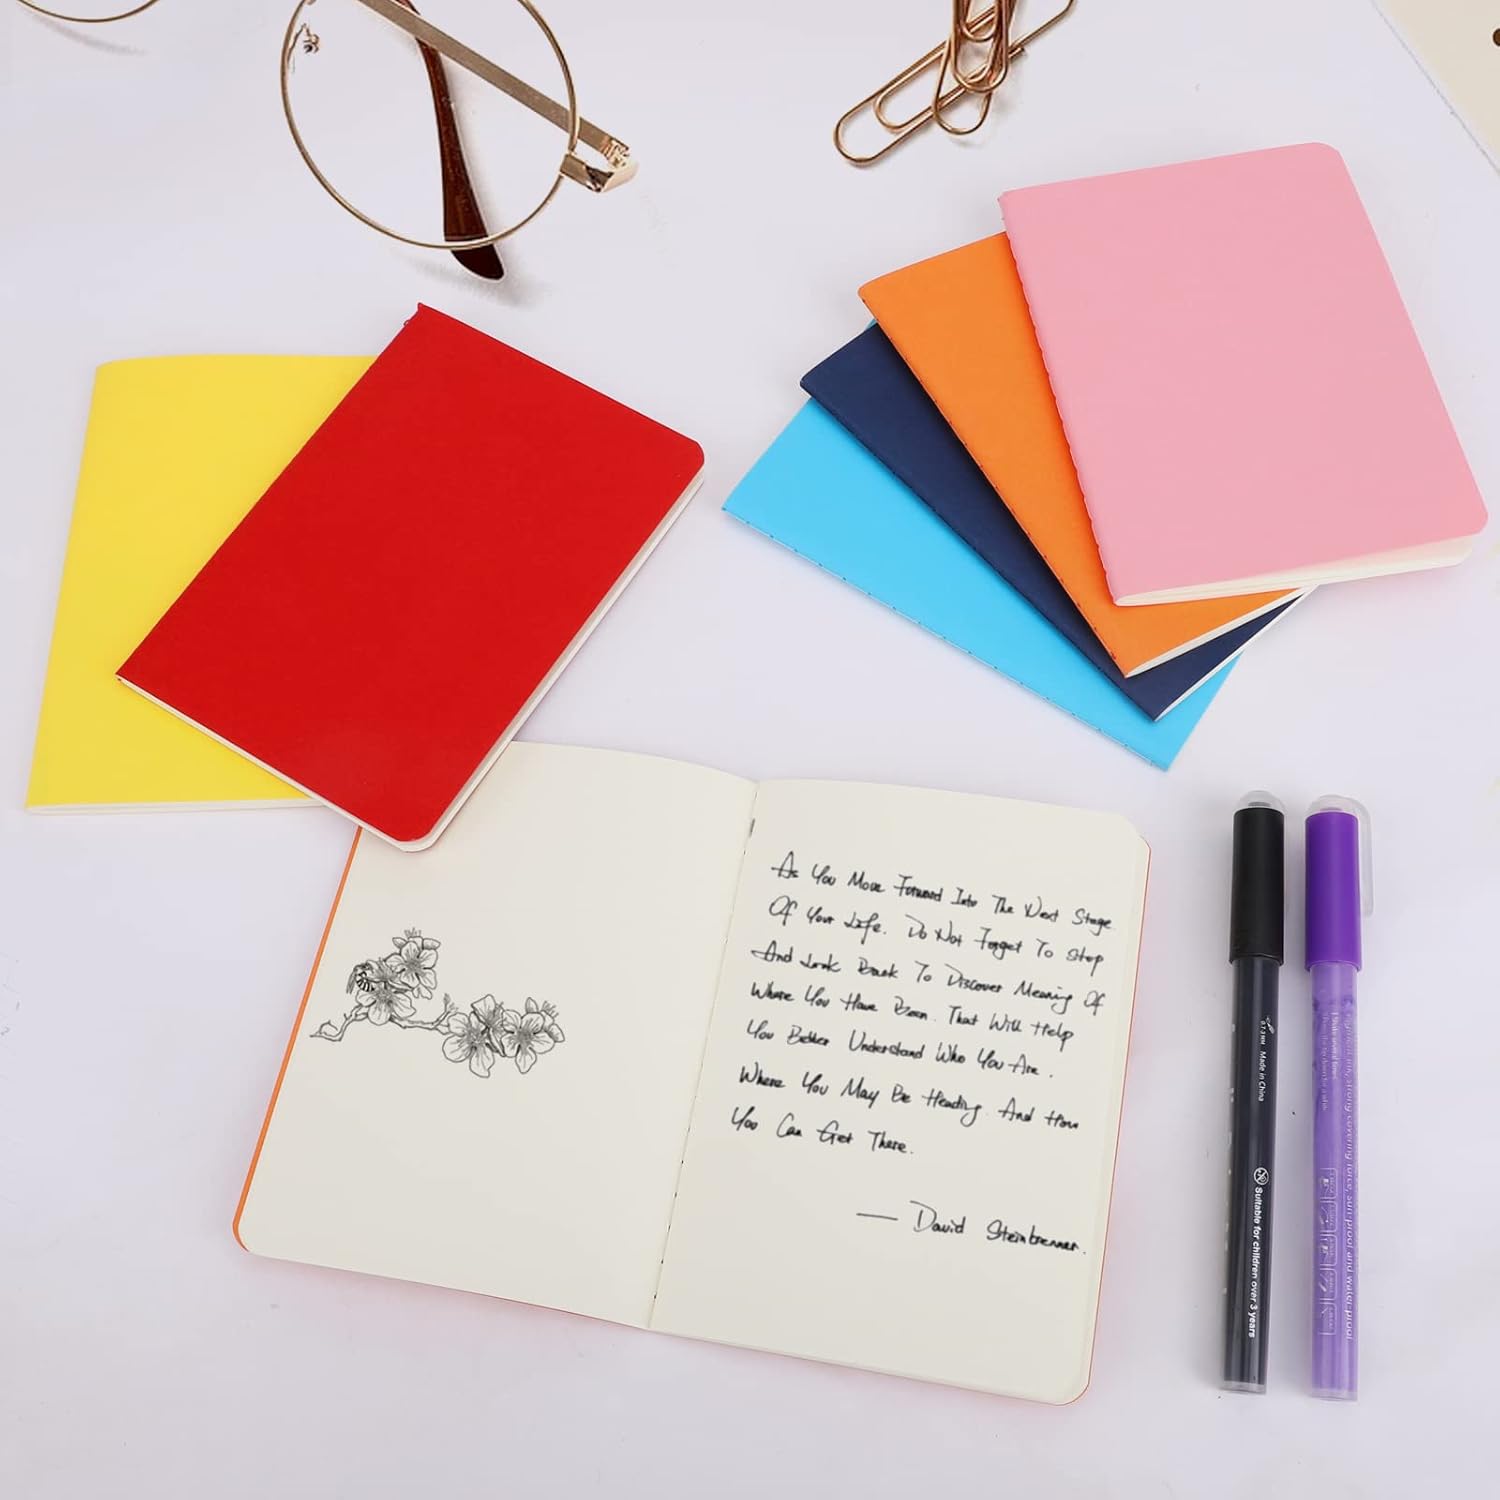 As You Move Forward Into The Next Stage
Of Your Life. Do Not Forget To Stop
And Look Back To Discover Meaning Of
Where You Have Been. That Will Help
You Better Understand Who You Are.
Where You May Be Heading. And How
You Can Get There.
— David Steinbrenner.
0.7-3 MM Made in China
Suitable for children over 3 years
strong covering force, sun proof and water proof